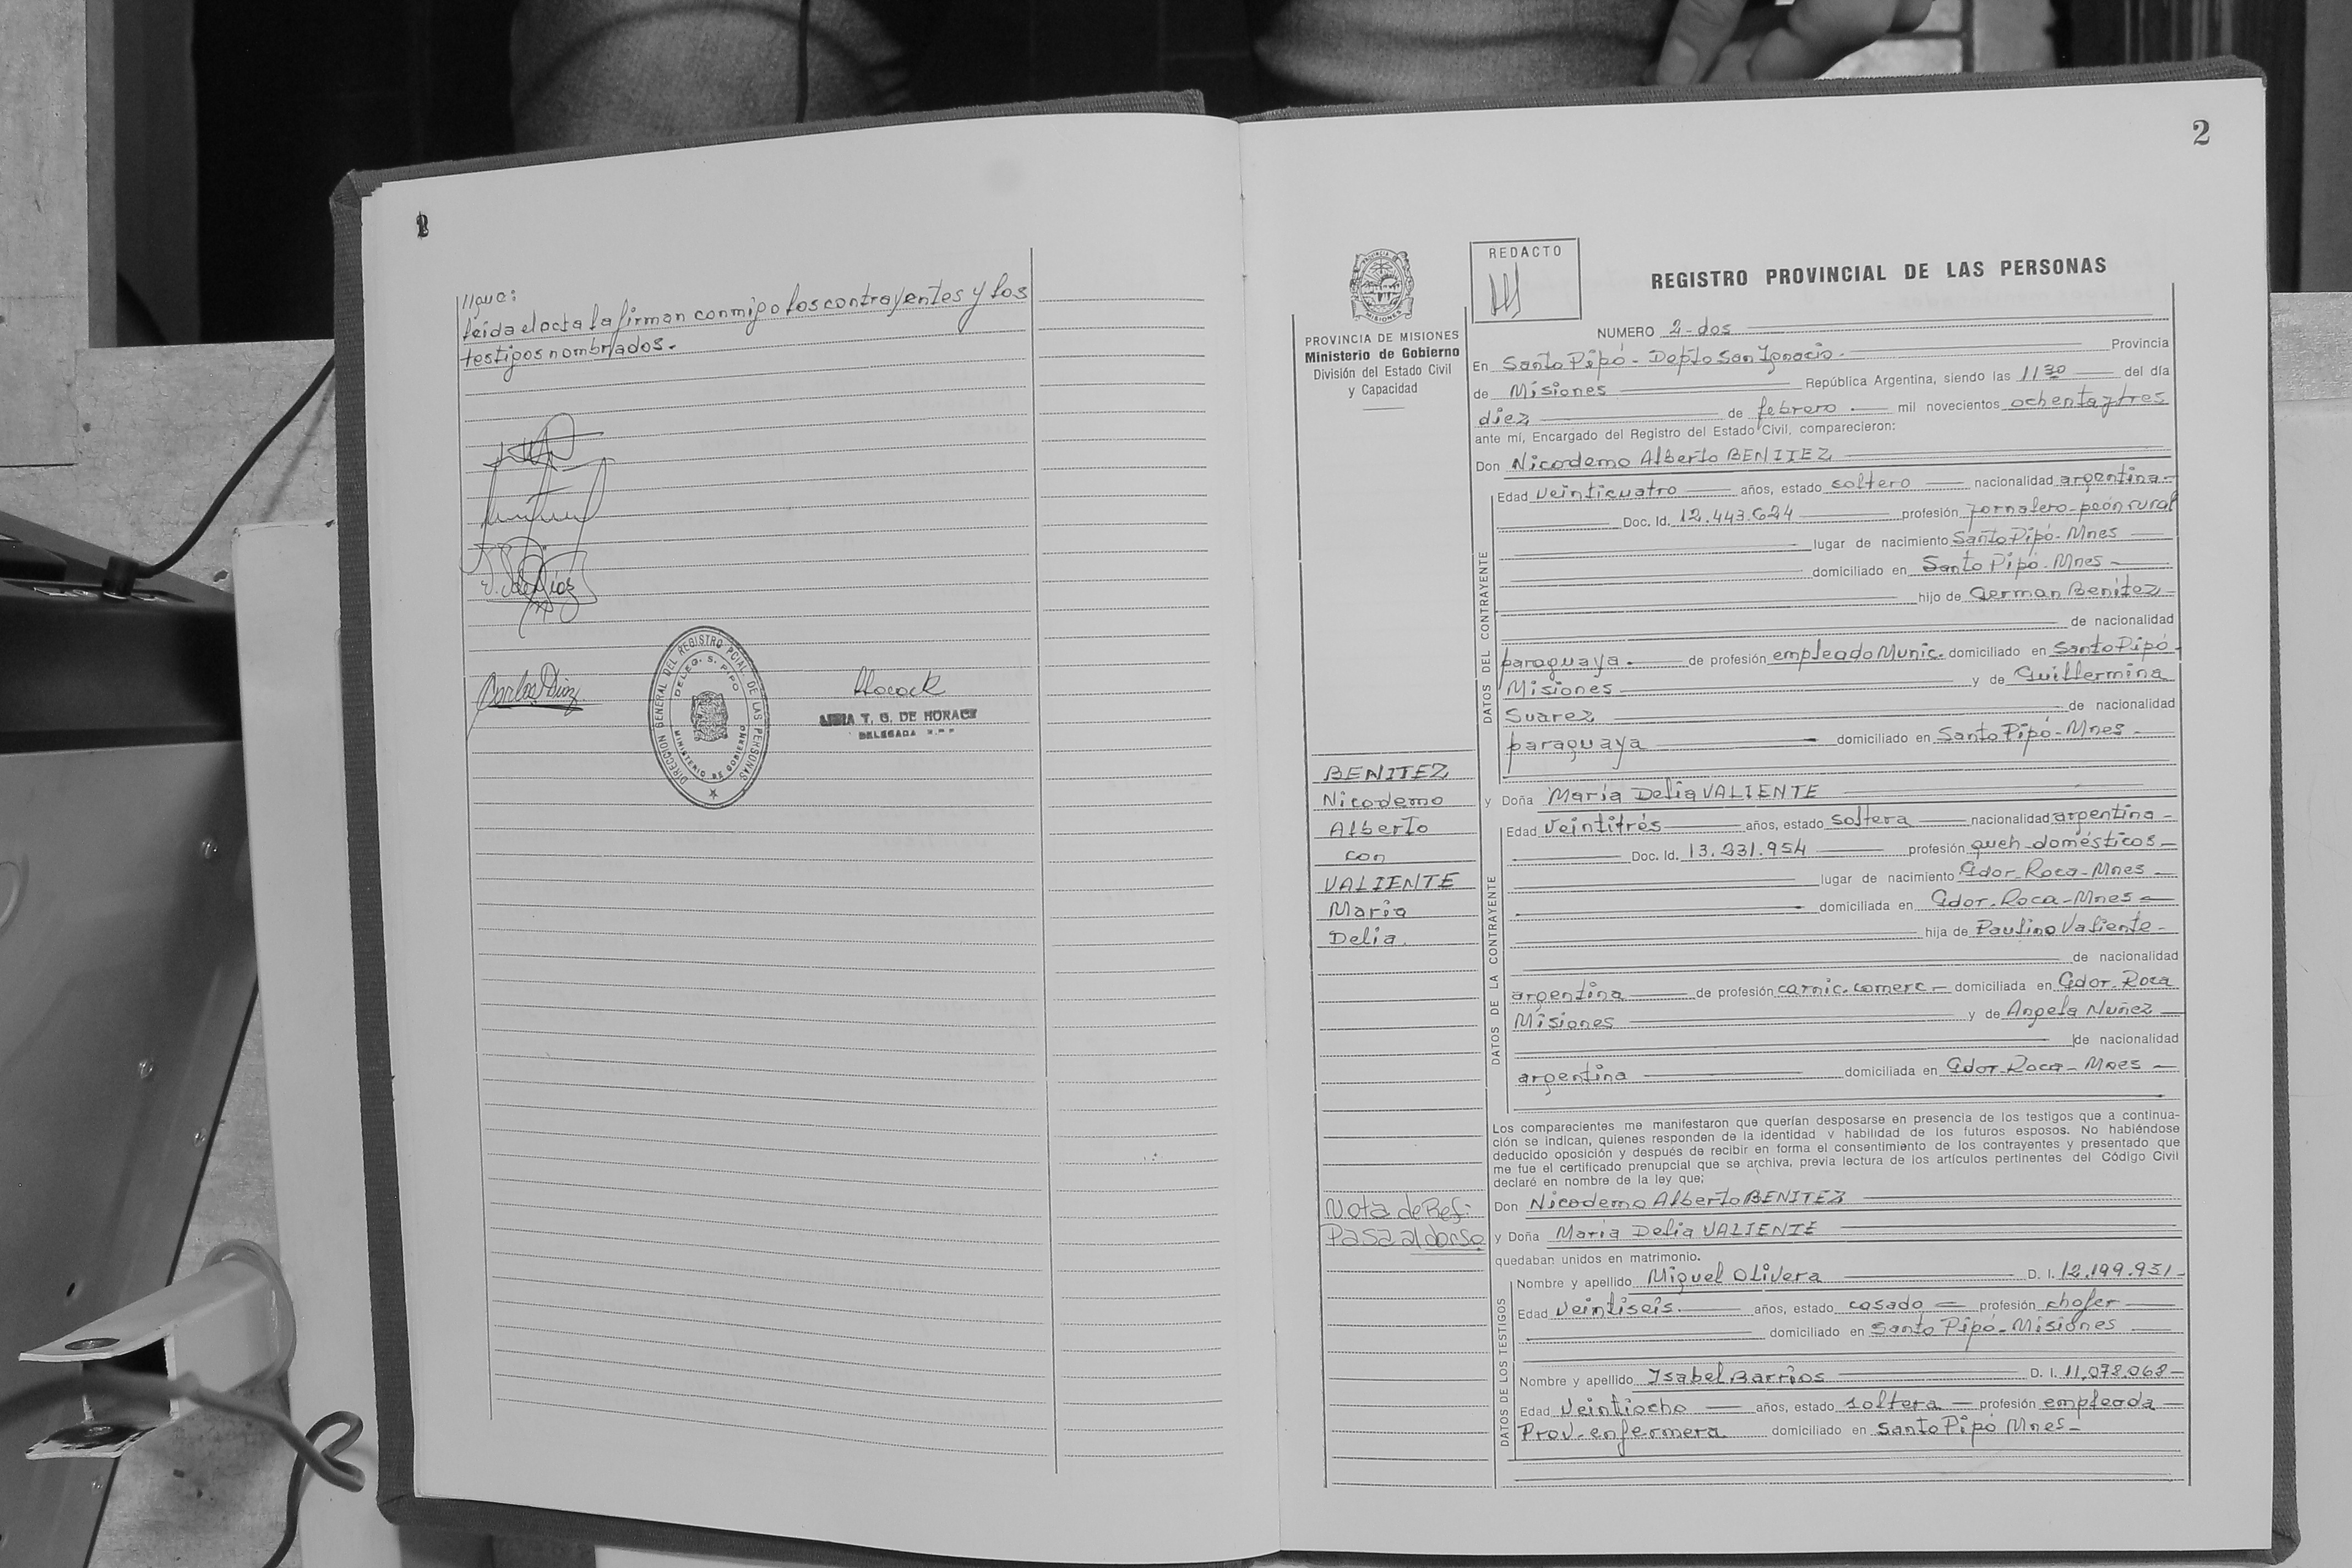 1
//gue:
leída el acta la firman conmigo los contrayentes y los
testigos nombrados.-
Carlos Diaz
DIRECCION GENERAL DEL REGISTRO PCIAL. DE LAS PERSONAS
DELEG. S. PIPO
MINISTERIO DE GOBIERNO
T. G. DE HORACK
DELEGADA
2
PROVINCIA DE MISIONES
Ministerio de Gobierno
División del Estado Civil
y Capacidad
REDACTO
REGISTRO PROVINCIAL DE LAS PERSONAS
NUMERO 2-dos
En Santo Pipó - Depto San Ignacio - Provincia
de Misiones República Argentina, siendo las 11 30 del día
diez de febrero mil novecientos ochenta y tres
ante mí, Encargado del Registro del Estado Civil, comparecieron:
Don Nicodemo Alberto BENITEZ
DATOS DEL CONTRAYENTE
Edad veinticuatro años, estado soltero nacionalidad argentina-
Doc. Id. 12.443.624 profesión jornalero-peón rural
lugar de nacimiento Santo Pipó-Mnes
domiciliado en Santo Pipó-Mnes-
hijo de German Benitez-
de nacionalidad
paraguaya- de profesión empleado Munic. domiciliado en Santo Pipó-
Misiones y de Guillermina
Suarez de nacionalidad
paraguaya domiciliado en Santo Pipó-Mnes-
BENITEZ
Nicodemo
Alberto
con
VALIENTE
Maria
Delia.
y Doña María Delia VALIENTE
DATOS DE LA CONTRAYENTE
Edad veintitrés años, estado soltera nacionalidad argentina-
Doc. Id. 13.231.954 profesión queh-domésticos-
lugar de nacimiento Gdor-Roca-Mnes-
domiciliada en Gdor-Roca-Mnes-
hija de Paulino Valiente-
de nacionalidad
argentina de profesión carnic.comerc- domiciliada en Gdor-Roca
Misiones y de Angela Nuñez
de nacionalidad
argentina domiciliada en Gdor-Roca-Mnes-
Los comparecientes me manifestaron que querían desposarse en presencia de los testigos que a continua-
ción se indican, quienes responden de la identidad y habilidad de los futuros esposos. No habiéndose
deducido oposición y después de recibir en forma el consentimiento de los contrayentes y presentado que
me fue el certificado prenupcial que se archiva, previa lectura de los artículos pertinentes del Código Civil
declaré en nombre de la ley que;
Nota de Ref:
Pasa al dorso
Don Nicodemo Alberto BENITEZ
y Doña María Delia VALIENTE
quedaban unidos en matrimonio.
DATOS DE LOS TESTIGOS
Nombre y apellido Miguel Olivera D. I. 12.199.951-
Edad veintiseis años, estado casado profesión chofer
domiciliado en Santo Pipó-Misiones
Nombre y apellido Isabel Barrios D. I. 11.078.068-
Edad veintiocho años, estado soltera profesión empleada
Prov-enfermera domiciliado en Santo Pipó Mnes-